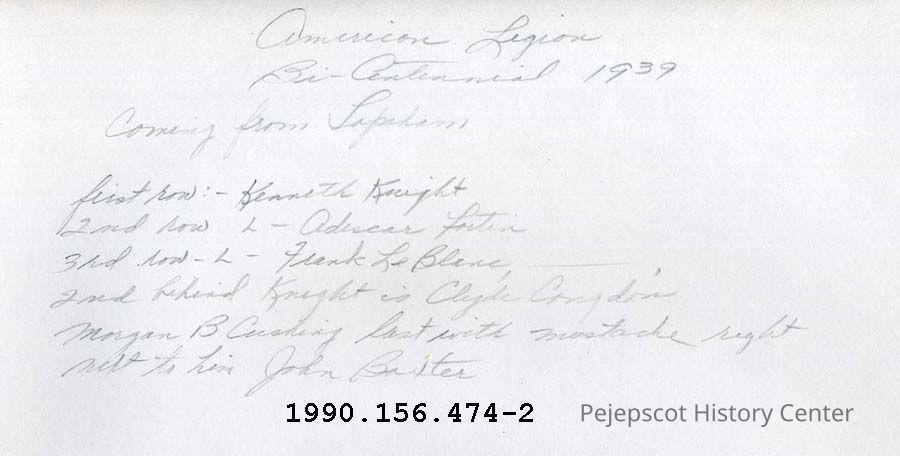 American Legion
Bi-Centennial 1939
Coming from Topsham
first row:- Kenneth Knight
2nd row L - Adescar Fortin
3rd row - L - Frank LeBlanc,
2nd behind Knight is Clyde Congdon
Morgan B Cushing last with mostache right
next to him John Baxter
1990.156.474-2 Pejepscot History Center